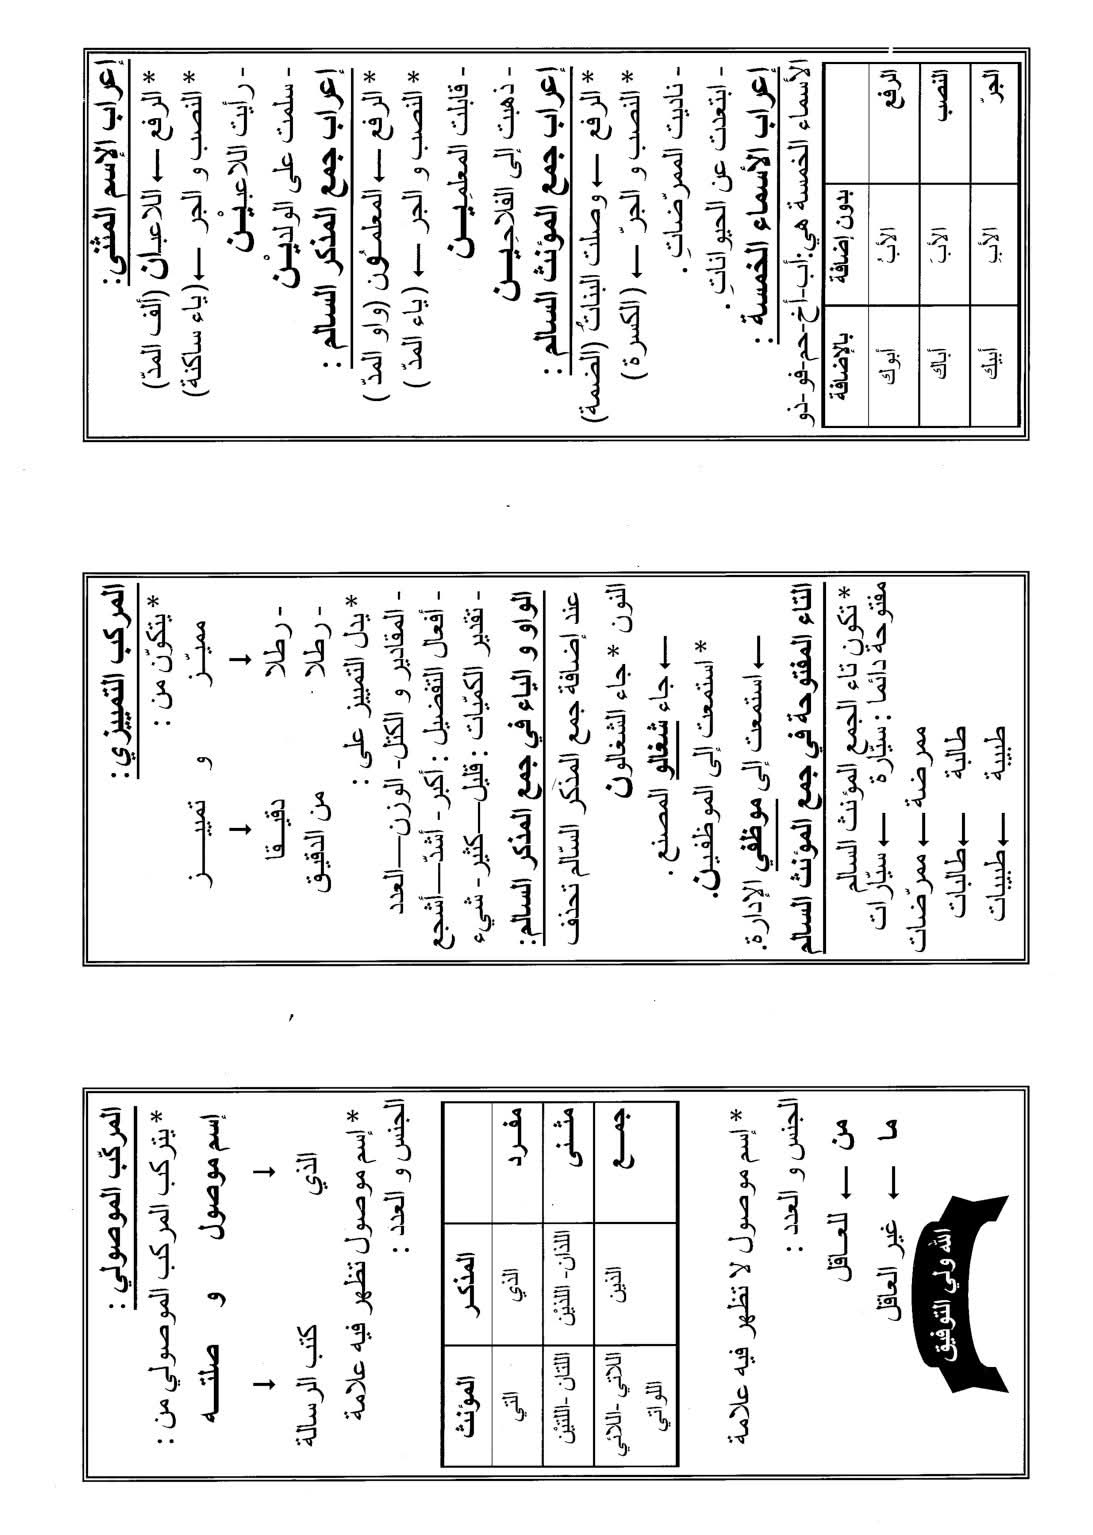 إعراب الإسم المثنى :
* الرفع ← اللاعبـان (ألف المدّ)
* النصب و الجر ← (ياء ساكنة)
- رأيت اللاعبـيْـن
- سلمت على الولديْـن
إعراب جمع المذكر السالم :
* الرفع ← المعلمـُون (واو المدّ)
* النصب و الجر ← (ياء المدّ)
- قابلت المعلمِيـن
- ذهبت إلى الفلاحِيـن
إعراب جمع المؤنث السالم :
* الرفع ← وصلت البناتُ (الضمة)
* النصب و الجرّ ← (الكسرة)
- ناديت الممرّضاتِ .
- ابتعدت عن الحيواناتِ .
إعراب الأسماء الخمسة :
الأسماء الخمسة هي:أب-أخ-حم-فو-ذو
بدون إضافة بالإضافة
الرفع الأبُ أبوك
النصب الأبَ أباك
الجرّ الأبِ أبيك
المركب التمييزي :
* يتكوّن من :
مميـّز و تمييـــز
↓ ↓
- رطلا دقيـقا
- رطلا من الدقيق
* يدل التمييز على :
- المقادير و الكتل- الوزن—العدد
- أفعال التفضيل : أكبر- أشدّ—أشجع
- تقدير الكميّات : قليل—كثير- شيء
الواو و الياء في جمع المذكر السالم:
عند إضافة جمع المذكر السّالم تحذف
النون * جاء الشغالون
← جاء شغالو المصنع .
* استمعت إلى الموظفين.
← استمعت إلى موظفي الإدارة.
التاء المفتوحة في جمع المؤنث السالم
* تكون تاء الجمع المؤنث السالم
مفتوحة دائما : سيّارة ← سيّارات
ممرضة ← ممرّضات
طالبة ← طالبات
طبيبة ← طبيبات
المركّب الموصولي :
* يتركب المركب الموصولي من :
إسم موصول و صلتـــه
↓ ↓
الذي كتب الرسالة
* إسم موصول تظهر فيه علامة
الجنس و العدد :
المذكـر المؤنث
مفـرد الذي التي
مثـنى اللذان- اللذيْن اللتان -اللتيْن
جمـع الذين اللاتي -اللائي
اللواتي
* إسم موصول لا تظهر فيه علامة
الجنس و العدد :
من ← للعـاقل
ما ← غير العاقل
الله ولي التوفيق